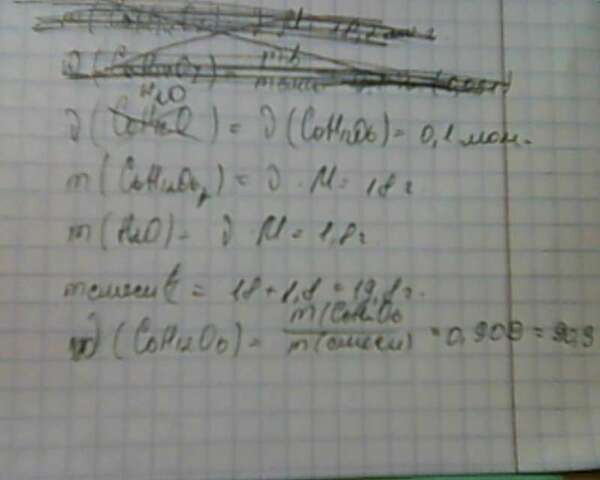 ν(H₂O) = ν(C₆H₁₂O₆) = 0,1 моль.
m(C₆H₁₂O₆) = ν · M = 18 г
m(H₂O) = ν · M = 1,8 г
m смеси = 18 + 1,8 = 19,8 г.
ω(C₆H₁₂O₆) = m(C₆H₁₂O₆ / m(смеси) = 0,909 = 90,9